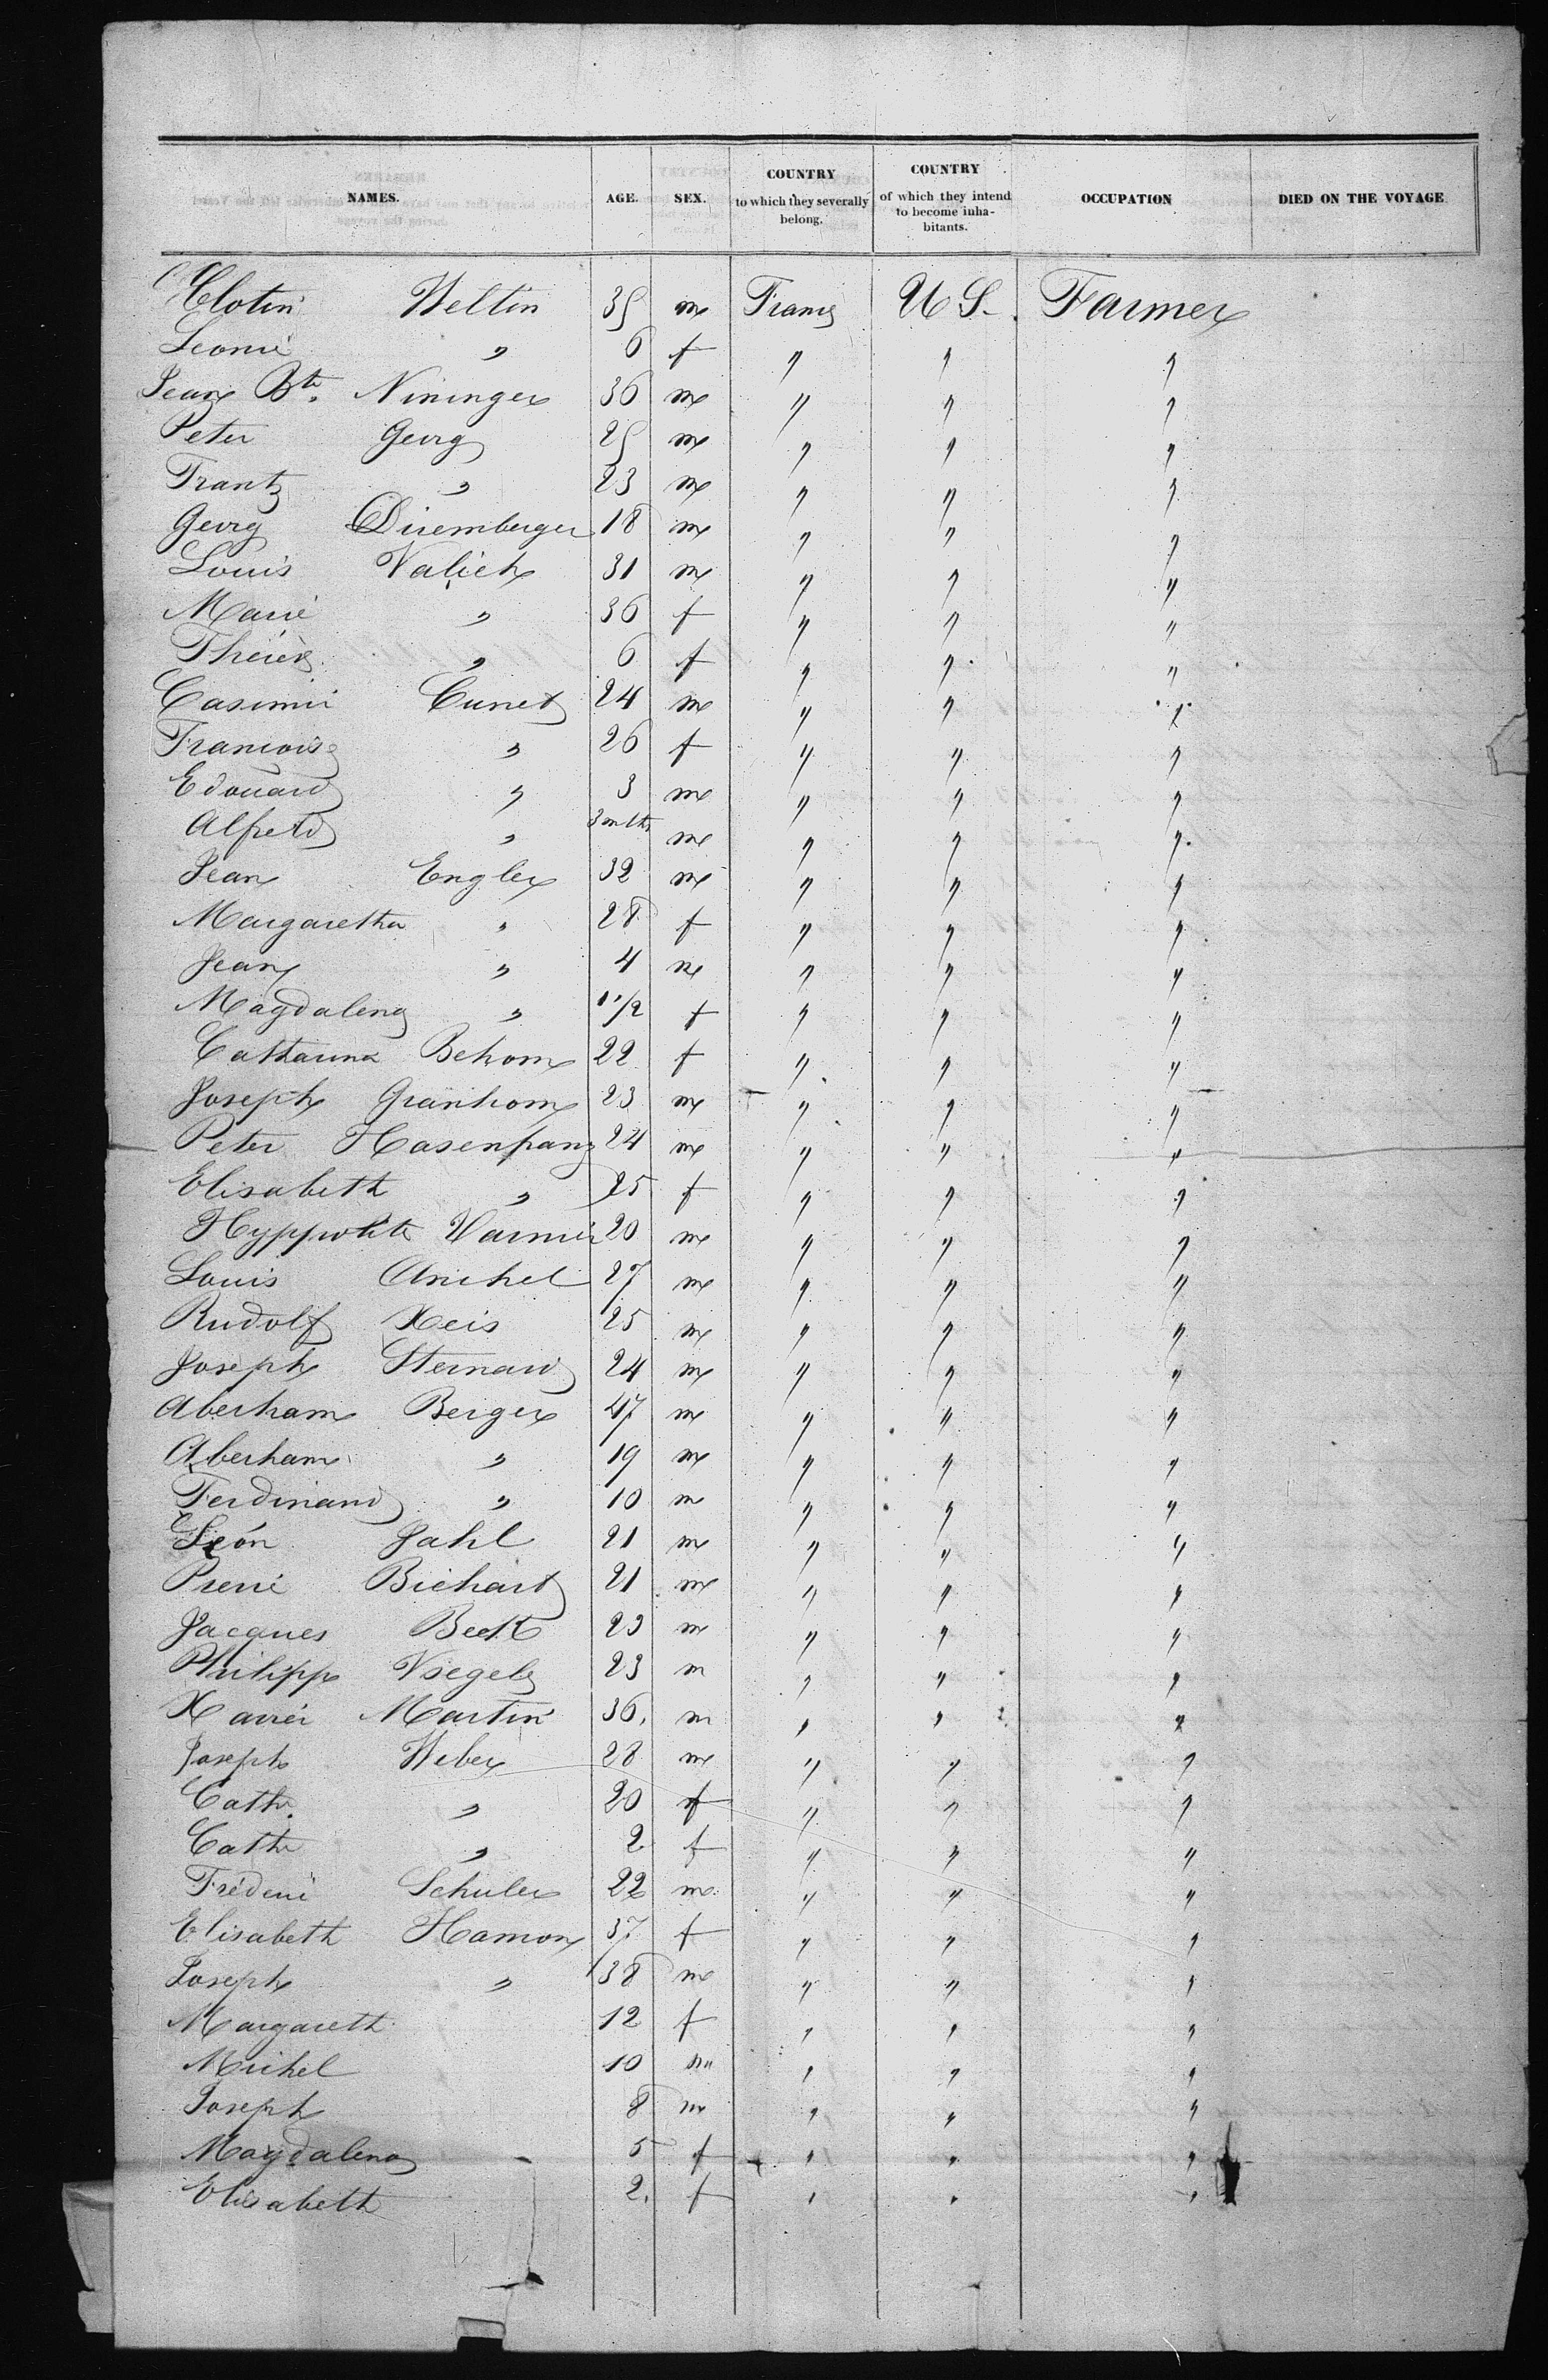 NAMES. AGE. SEX. COUNTRY to which they severally belong. COUNTRY of which they intend to become inhabitants. OCCUPATION DIED ON THE VOYAGE
Clotin Weltin 35 m France U S. Farmer
Leonie " 6 f " " "
Jean Bte. Nininger 36 m " " "
Peter Georg 25 m " " "
Frantz " 23 m " " "
Georg Diremberger 18 m " " "
Louis Valich 31 m " " "
Marie " 36 f " " "
Thérès " 6 f " " "
Casimir Cunet 24 m " " "
Françoise " 26 f " " "
Edouard " 3 m " " "
Alfred " 3 mths m " " "
Jean Engler 32 m " " "
Margaretha " 28 f " " "
Jean " 4 m " " "
Magdalena " 1 1/2 f " " "
Catharina Behom 22 f " " "
Joseph Granhom 23 m " " "
Peter Hasenfang 24 m " " "
Elisabeth " 25 f " " "
Hyppolite Varnier 20 m " " "
Louis Anchel 27 m " " "
Rudolf Xeis 25 m " " "
Joseph Steinard 24 m " " "
Aberham Berger 47 m " " "
Aberham " 19 m " " "
Ferdinand " 10 m " " "
Léon Jahl 21 m " " "
Pierre Biehart 21 m " " "
Jacques Beck 23 m " " "
Philipp Vsegele 23 m " " "
Xavier Martin 36. m " " "
Joseph Weber 28 m " " "
Cath. " 20 f " " "
Cath " 2 f " " "
Fréderic Schuler 22 m " " "
Elisabeth Hamon 37 f " " "
Joseph " 38 m " " "
Margareth 12 f " " "
Michel 10 m " " "
Joseph 8 m " " "
Magdalena 5 f " " "
Elisabeth 2. f " " "